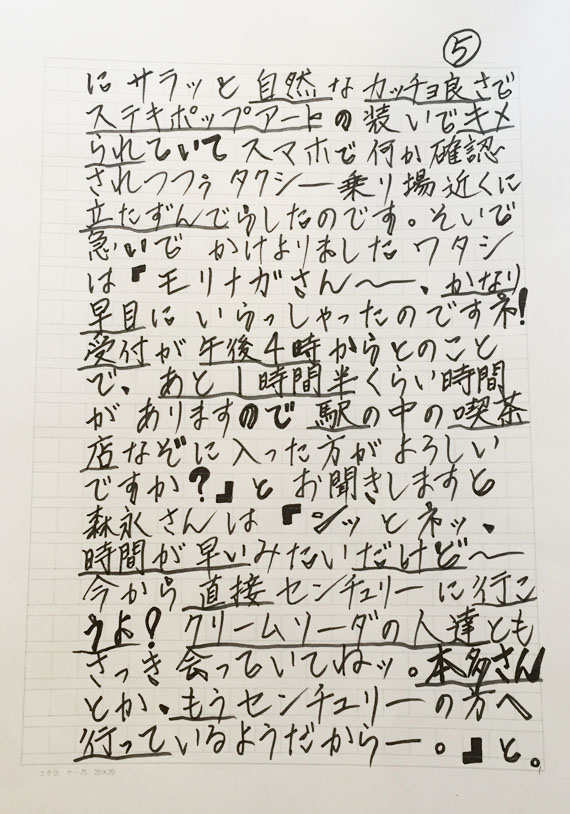 ⑤
に サラッと 自然な カッチョ良さで
ステキポップアートの装いでキメ
られていて スマホで何か確認
されつつぅ タクシー乗り場近くに
立たずんでらしたのです。そいで
急いで かけよりました ワタシ
は『モリナガさん〜ー、かなり
早目に いらっしゃったのですネ!
受付が 午後4時からとのこと
で、あと1時間半くらい時間
が ありますので 駅の中の喫茶
店なぞに入った方が よろしい
ですか?』と お聞きしますと
森永さんは『ンッとネッ、
時間が早いみたいだけど〜
今から 直接センチュリーに行こ
うよ! クリームソーダの人達とも
さっき 会っていてねッ。本多さん
とか、もうセンチュリーの方へ
行っているようだからー。』と。
コクヨ ケー75 20×20